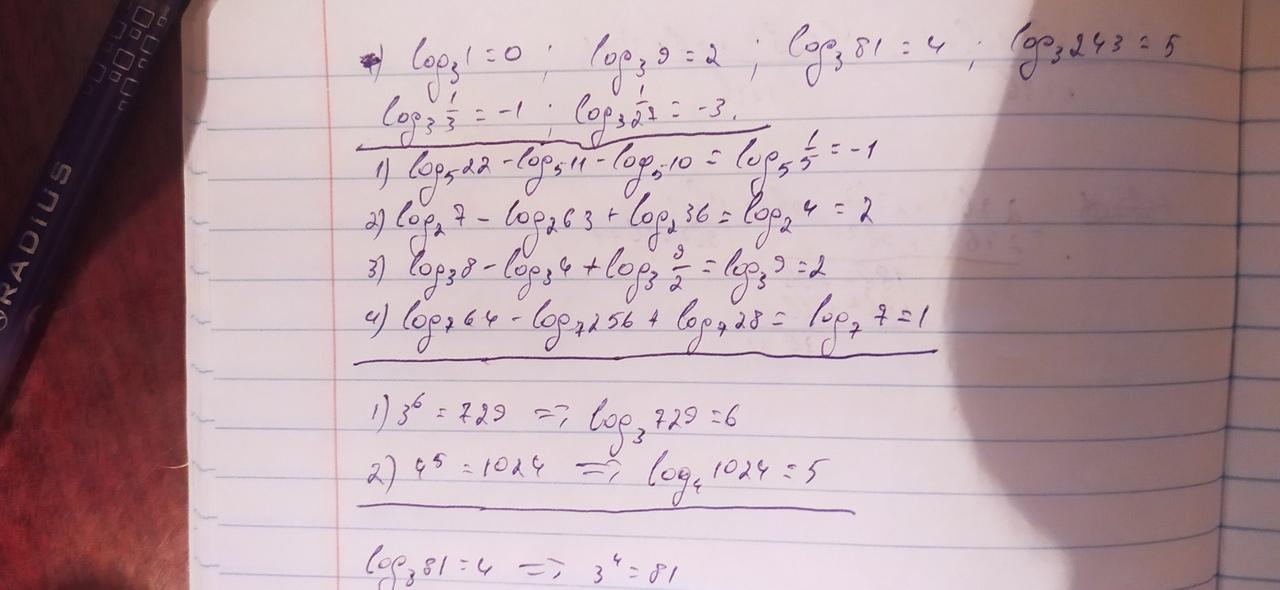 1) log₃1 = 0 ; log₃9 = 2 ; log₃81 = 4 ; log₃243 = 5
log₃ 1/3 = -1 ; log₃ 1/27 = -3.
1) log₅22 - log₅11 - log₅10 = log₅ 1/5 = -1
2) log₂7 - log₂63 + log₂36 = log₂4 = 2
3) log₃8 - log₃4 + log₃ 9/2 = log₃9 = 2
4) log₇64 - log₇256 + log₇28 = log₇7 = 1
1) 3⁶ = 729 => log₃729 = 6
2) 4⁵ = 1024 => log₄1024 = 5
log₃81 = 4 => 3⁴ = 81
RADIUS